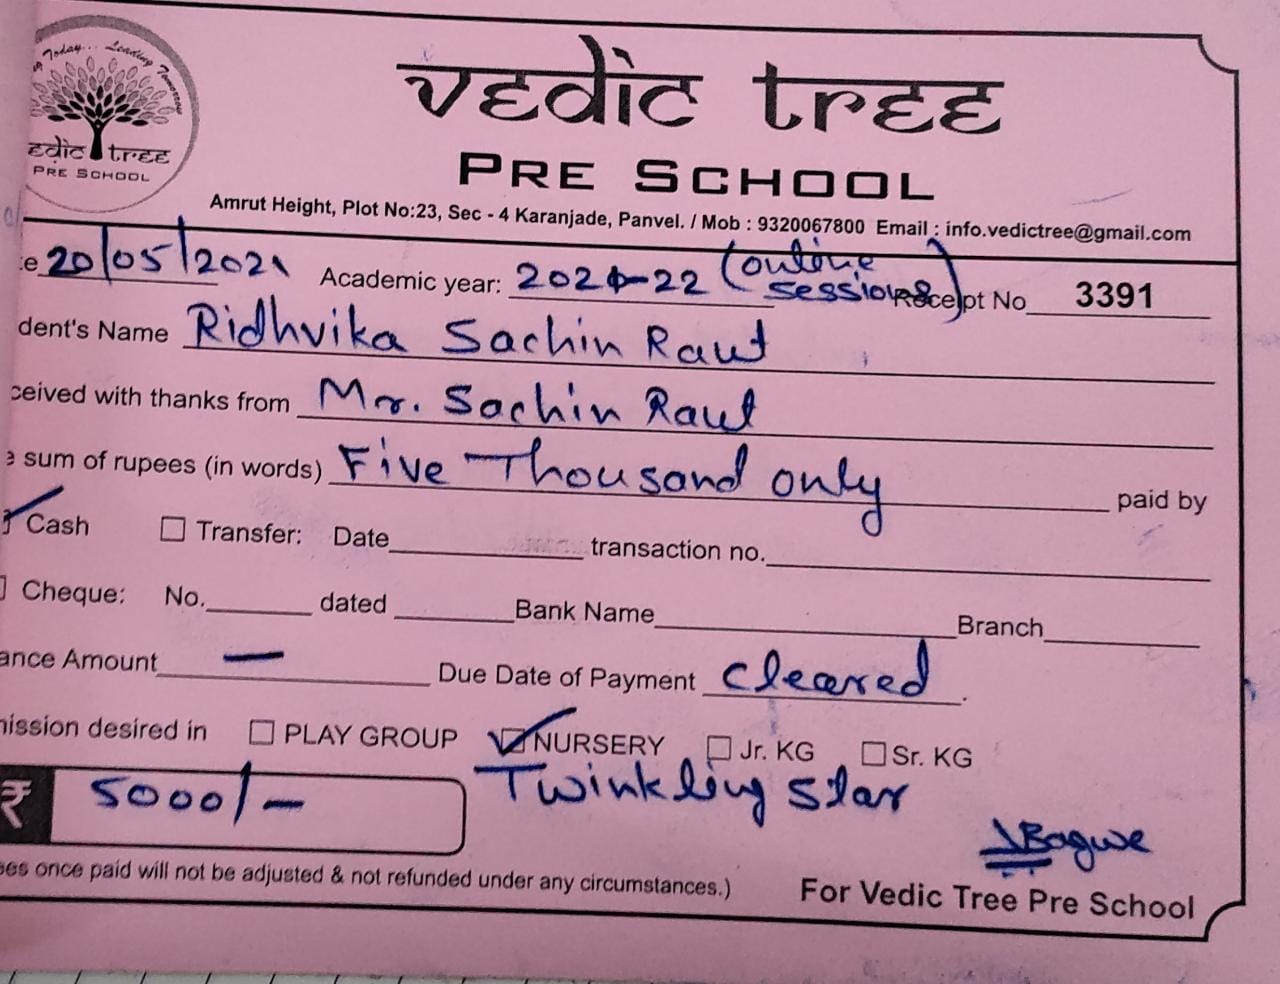 Today... Leading Tomorrow
edic tree
PRE SCHOOL
vedic tree
PRE SCHOOL
Amrut Height, Plot No:23, Sec - 4 Karanjade, Panvel. / Mob : 9320067800 Email : info.vedictree@gmail.com
e 20/05/2021 Academic year: 2021-22 (online sessions) Receipt No 3391
dent's Name Ridhvika Sachin Raut
ceived with thanks from Mr. Sachin Raut
e sum of rupees (in words) Five Thousand only paid by
Cash Transfer: Date transaction no.
Cheque: No. dated Bank Name Branch
ance Amount — Due Date of Payment cleared.
nission desired in PLAY GROUP NURSERY Jr. KG Sr. KG
₹ 5000/- Twinkling Star
Bagwe
ees once paid will not be adjusted & not refunded under any circumstances.) For Vedic Tree Pre School